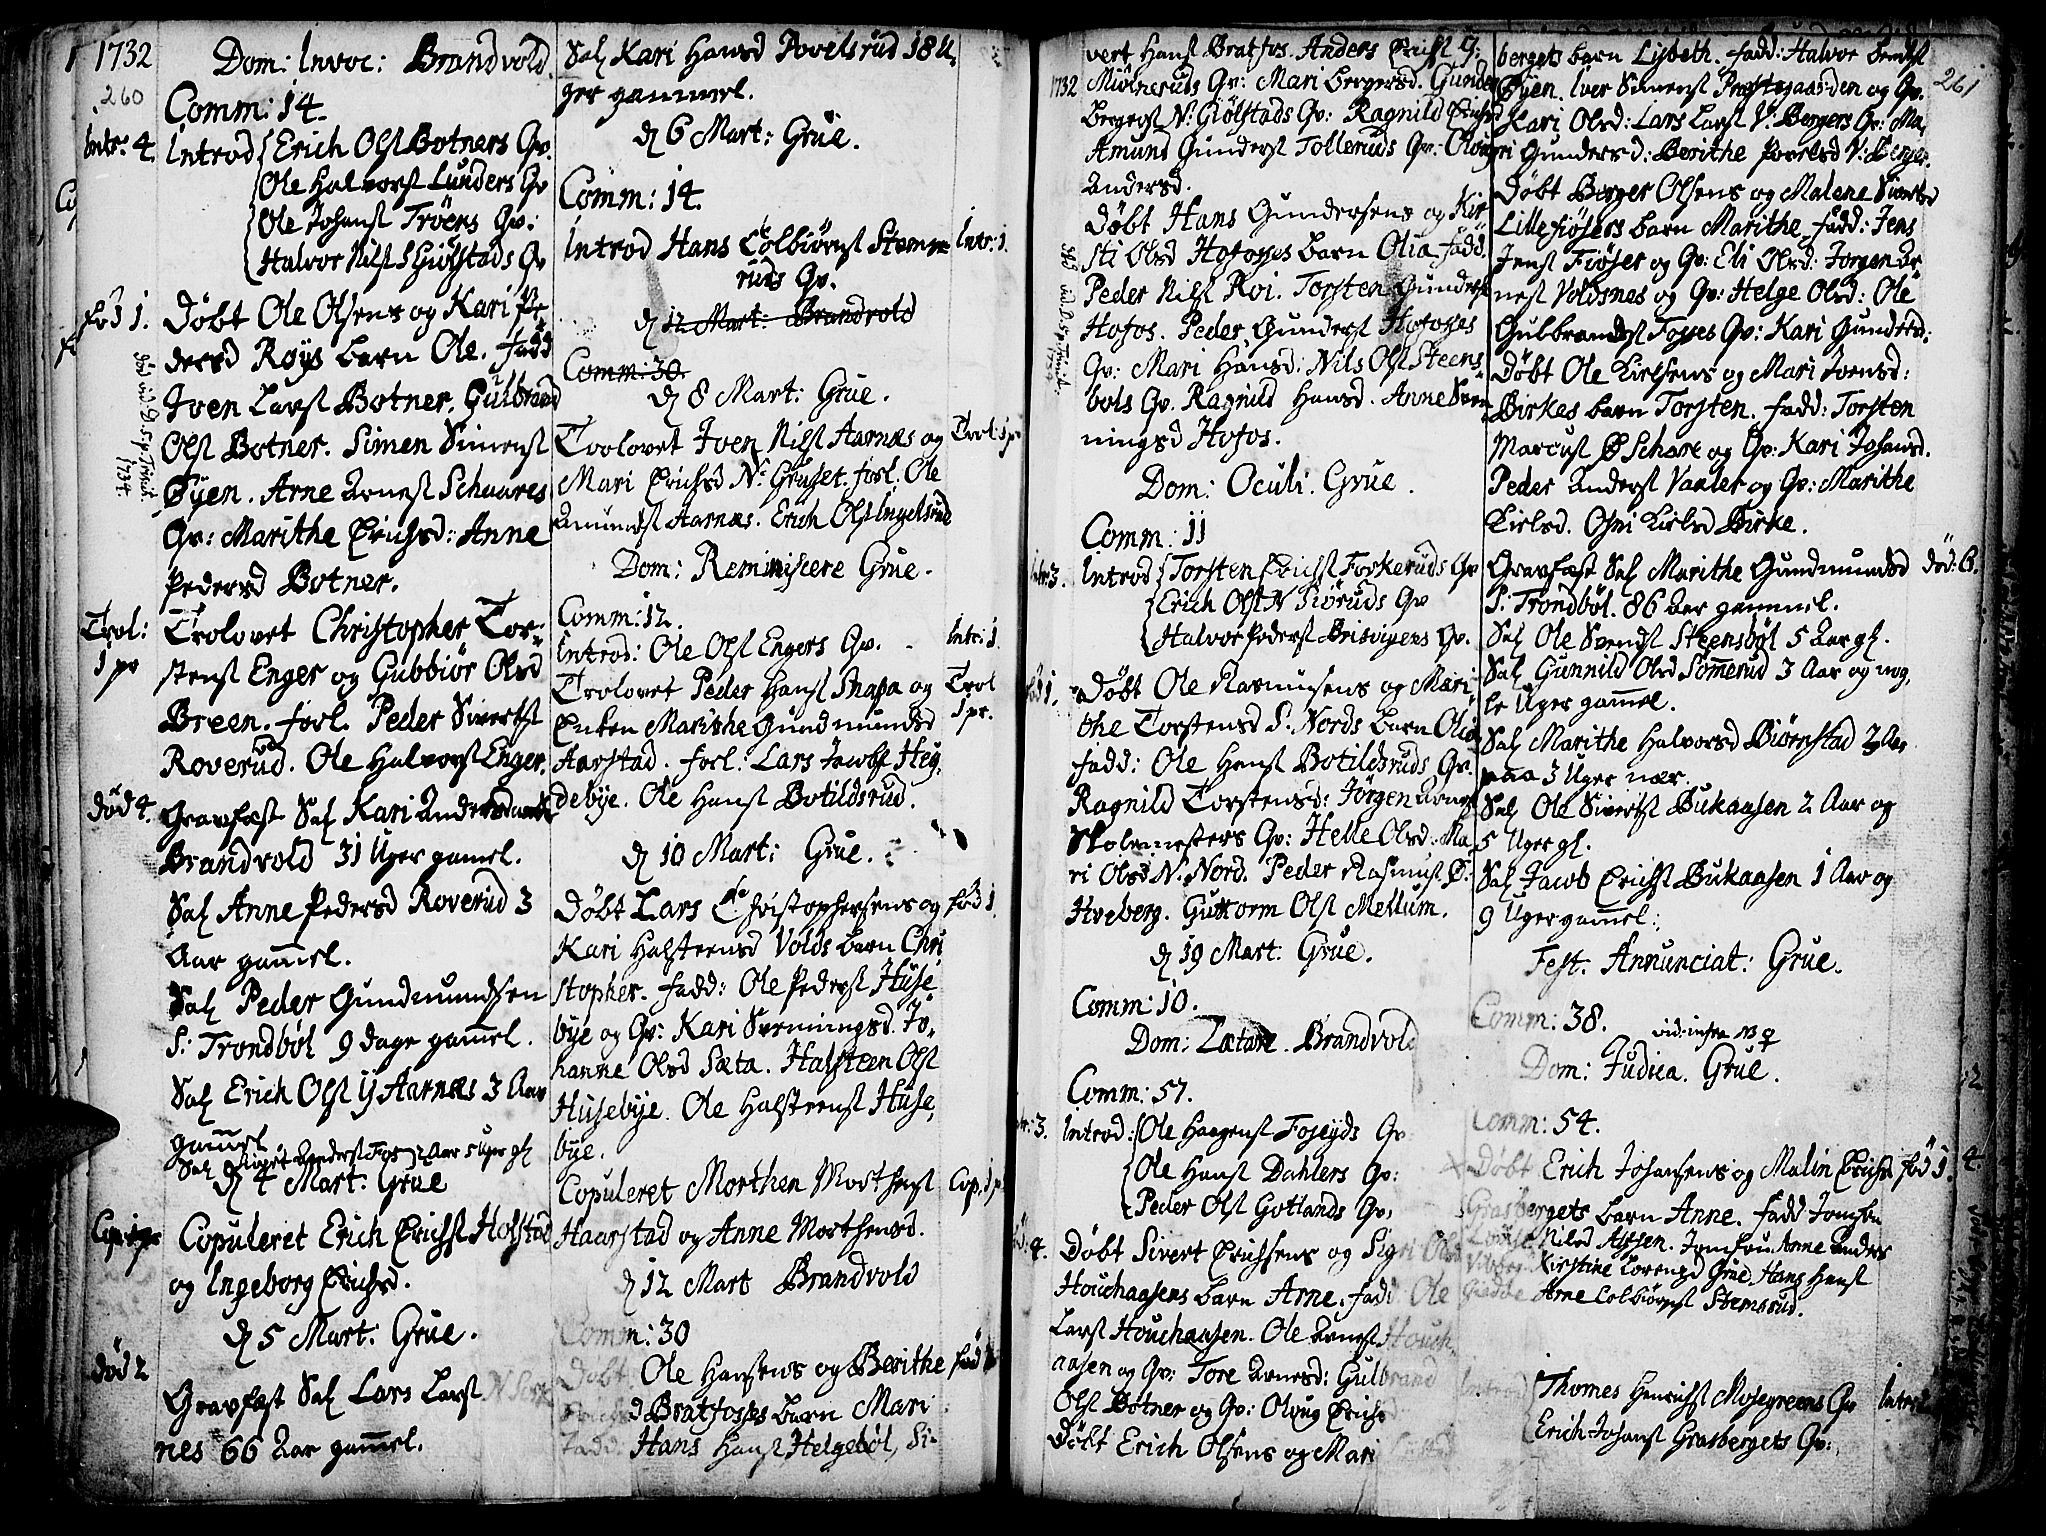 1732
260
Dom: Invoc: Brandvold.
Comm: 14.
Intr: 4.
Introd Erich Ols Botners Qv.
Ole Halvors Lunders Qv
Ole Johans Tröens Qv:
Halvor Nils S Giölstads Qv
föd 1.
Döbt Ole Olsens og Kari Pe
dersd Röys barn Ole. fadd
Joen Lars Botner. Gulbrand
Ols Botner. Simen Simens
Öyen. Arne Arnes Schaares
Qv: Marithe Erichsd: Anne
Pedersd Botner.
1734.
Trol:
1 pr
Trolovet Christopher Tor-
stens Enger og Gubbiör Olsd
Breen. forl. Peder Siverts
Roverud. Ole Halvors Enger.
död 4.
Gravfæst Sal Kari
Brandvold 31 Uger gamel.
Sal Anne Pedersd Roverud 3
Aar gamel.
Sal Peder Gundmundsen
S: Trondböl 9 dage gamel.
Sal Erich Ols Aarnæs 3 Aar
gamel
Sal Anders Fos 2 Aar 5 Uger gl
D 4 Mart: Grue
Cop: 1 pr
Copuleret Erich Erichs Hofstad
og Ingeborg Erichsd.
D 5 Mart: Grue.
död 2
Gravfæst Sal Lars Lars
nes 66 Aar gamel.
Sal Kari Hansd Povelsrud 18 U,
ger gammel.
D 6 Mart: Grue.
Comm: 14.
Introd Hans Colbiörns Stemme
ruds Qv.
Intr: 1.
D 12 Mart: Brandvold
Comm: 30.
D 8 Mart: Grue.
Trolovet Joen Nils Aarnæs og
Trol: 1 pr
Mari Erichsd N: Grusset. forl. Ole
Amunds Aarnæs. Erich Ols Ingelsrud
Dom: Reminiscere Grue.
Comm: 12.
Introd: Ole Ols Engers Qv.
Intr: 1
Trolovet Peder Hans Skasa og
Trol
1 pr.
Enken Marithe Gundmundsd
Aarstad. forl: Lars Jacobs Hey,
debye. Ole Hans Botildsrud.
D 10 Mart: Grue.
Döbt Lars Christophersens og
föd 1
Kari Halsteensd Volds barn Chri
stopher. fadd: Ole Peders Huse
bye og Qv: Kari Svenningsd. Jo,
hanne Olsd Sæta. Halsteen Ols
Husebye. Ole Halsteens Huse,
bye.
Copuleret Morthen Morthens
Cop. 1 p
Haarstad og Anne Morthensd.
D 12 Mart Brandvold
Comm: 30
Döbt Ole Hansens og Berithe
föd
d Bratfosses barn Mari
Fadd. Hans Hans Helgeböl, Si-
vert Hans Bratfos. Anders
1732
Mölneruds Qv: Mari Bergersd. Gunder
Bergers N: Giölstads Qv: Ragnild Erichsd
Amund Gunders Tollenuds Qv: Olaug
Andersd.
Döbt Hans Gundersens og Kir
sti Olsd Hofosses barn Olia. fadd.
Peder Nils Roi. Torsten Gunders
Hofos. Peder Gunders Hofosses
Qv: Mari Hansd: Nils Ols Steens
bols Qv. Ragnild Hansd. Anne Sven
ningsd Hofos.
Dom: Oculi. Grue.
Comm: 11
Intr: 3.
Introd Torsten Erichs Forkeruds Qv
Erich Ols N Siöruds Qv
Halvor Peders Brisvigens Qv.
föd 1.
Döbt Ole Rasmusens og Mari
the Torstensd S: Nords barn Olia
fadd: Ole Hans Botildsruds Qv.
Ragnild Torstensd: Jörgen Arnes
Skolemesters Qv: Helle Olsd: Ma
ri Olsd N: Nord. Peder Rasmus Ö.
Hveberg. Guttorm Ols Mellum.
D 19 Mart. Grue.
Comm: 10.
Dom: Lætare. Brandvold
Comm: 57.
Intr: 3.
Introd: Ole Haagens Foseyds Qv
Ole Hans Dahlers Qv:
Peder Ols Gotlands Qv,
föd: 4.
Döbt Sivert Erichsens og Sigri Olsd
Houchaasens barn Arne. fadd Ole
Lars Houchaasen. Ole Arnes Houch
aasen og Qv: Tore Arnesd: Gulbrand
Ols Botner og Qv: Olaug Erichsd
Döbt Erich Olsens og Mari
261
bergets barn Lisbeth. fadd: Halvor
Öyen. Iver Simens Præstegaarden og Qv.
Kari Olsd: Lars Lars V: Bergers Qv: Ma,
ri Gundersd: Berithe Povelsd V: Berger.
Döbt Berger Olsens og Malene Sivertsd
Lillefiösers barn Marithe. fadd: Jens
Jens Fiöser og Qv: Eli Olsd: Jorgen Ar
nes Voldsnes og Qv: Helge Olsd: Ole
Gulbrands Fosses Qv: Kari Gundersd:
Döbt Ole Kielsens og Mari Joensd:
Birkes barn Torsten. fadd: Torsten
Marcus Ö Schare og Qv: Kari Johansd.
Peder Anders Vaaler og Qv: Marithe
Kielsd. Osni Kielsd Birke.
Gravfæst Sal Marithe Gundmundsd
död: 6.
S: Trondböl. 86 Aar gammel.
Sal Ole Svends Steensböl 5 Aar gl.
Sal Gunnild Olsd Sömerud 3 Aar og nog,
le Uger gamel.
Sal Marithe Halvorsd Biörnstad 2 Aar
paa 3 Uger nær.
Sal Ole Siverts Bukaasen 2 Aar og
5 Uger gl.
Sal Jacob Erichs Bukaasen 1 Aar og
9 Uger gamel.
Fest. Annunciat: Grue.
Comm: 38.
vid: infra
Dom: Judica. Grue.
Comm: 54.
Döbt Erich Johansens og Malin Erichsd
föd 1.
Grasbergets barn Anne. fadd Jomfru
Nilsd Assen. Jomfru Anne Anders
Kirstine Lorensd Grue. Hans Hans
Gredde Arne Colbiörns Stemsrud.
Introd
Thomes Henrichs Mosegreens Qv
Erich Johans Grasbergets Qv: